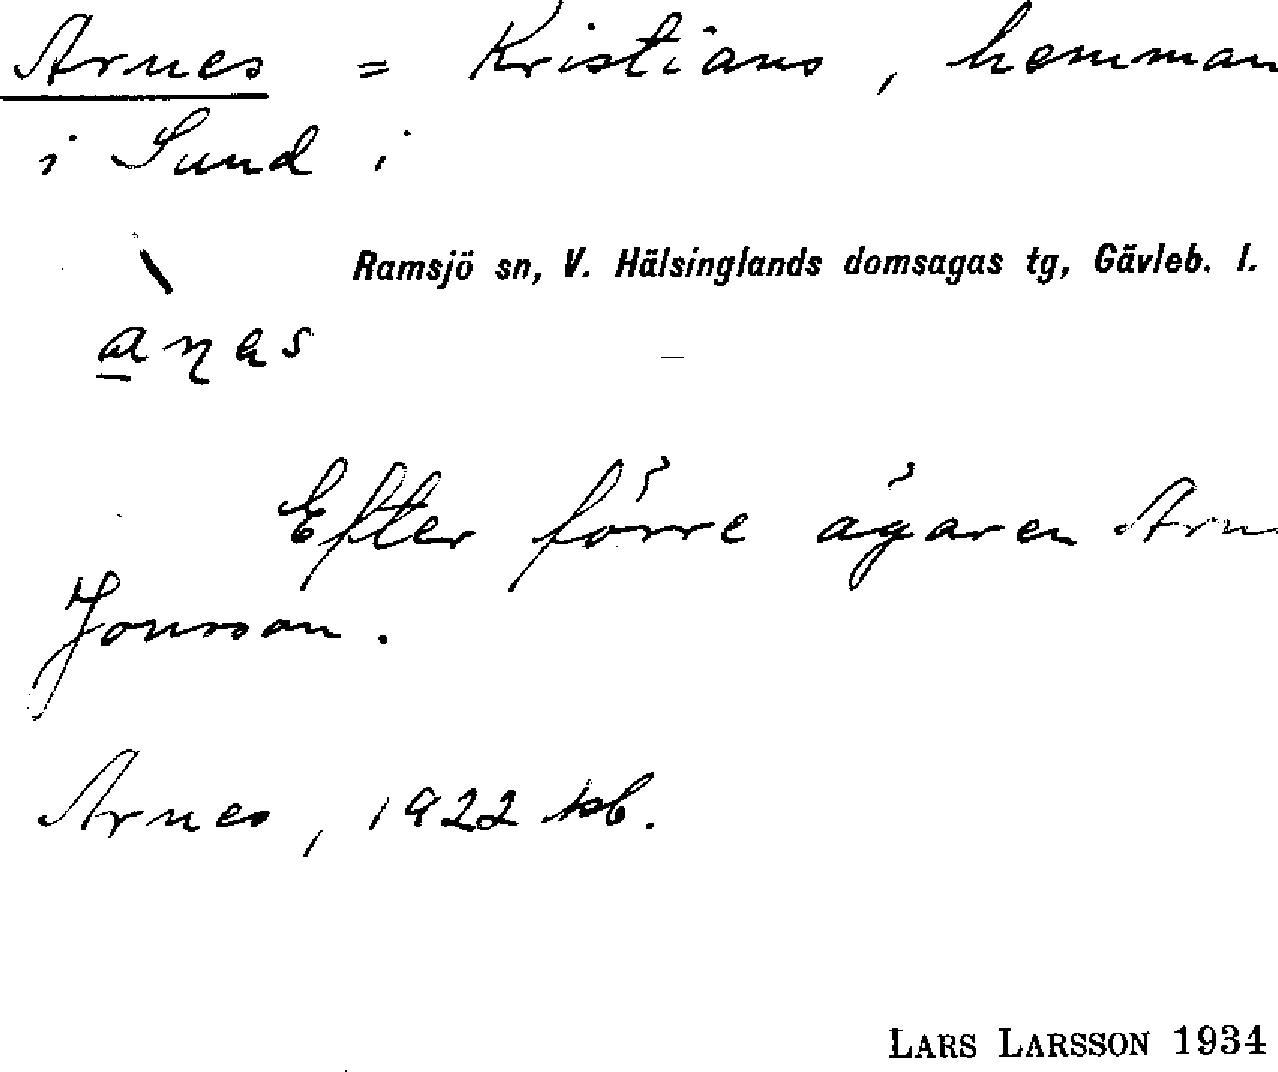 Arnes = Kristians, hemman
i Sund i
Ramsjö sn, V. Hälsinglands domsagas tg, Gävleb. l.
Efter förre ägaren Arn
Jonsson.
Arnes, 1922 kb.
LARS LARSSON 1934